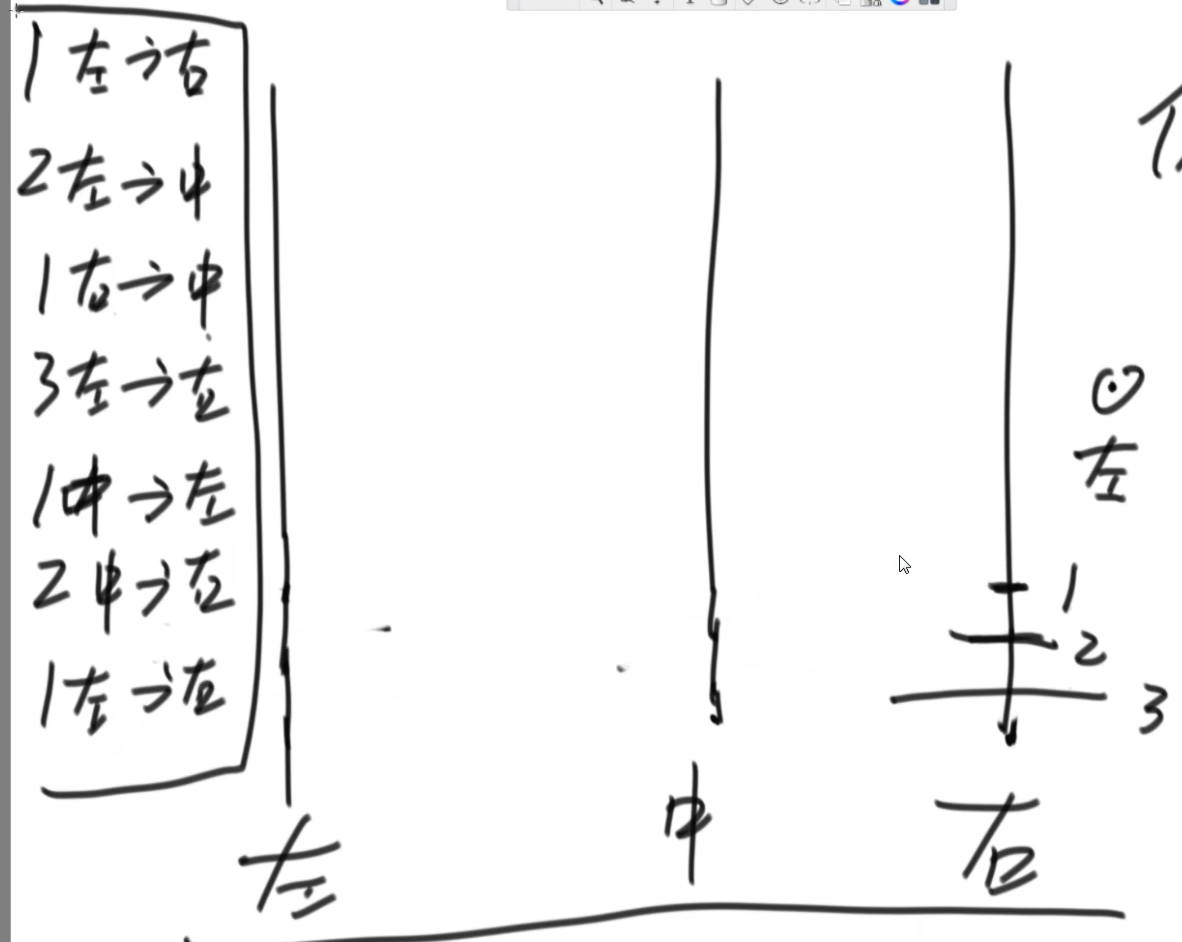 1左→右
2左→中
1右→中
3左→右
1中→左
2中→右
1左→右
左
1
2
3
左
中
右